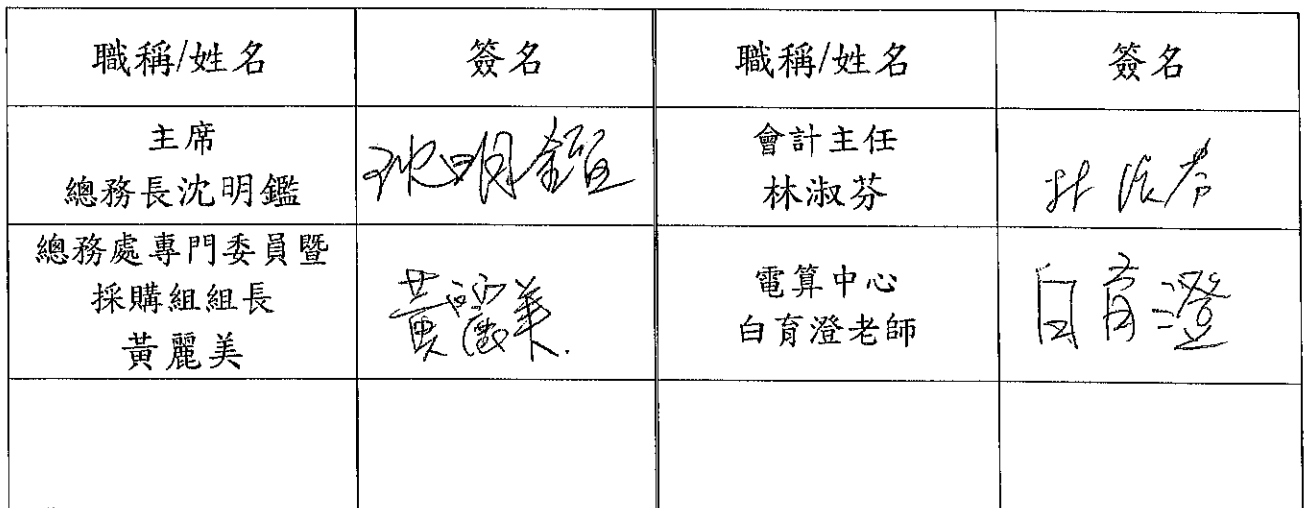 職稱/姓名 簽名 職稱/姓名 簽名
主席
總務長沈明鑑
沈明鑑
會計主任
林淑芬
林淑芬
總務處專門委員暨
採購組組長
黃麗美
黃麗美
電算中心
白育澄老師
白育澄